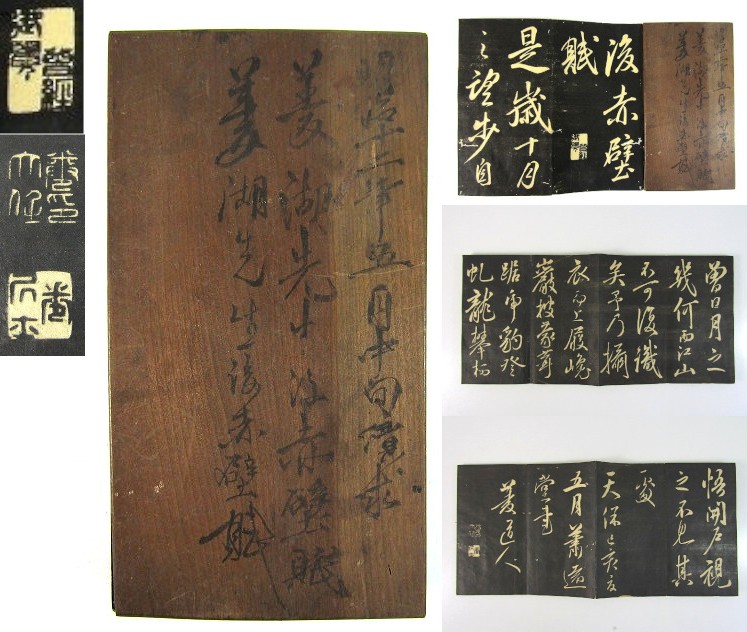 明治十二年五月中旬償求
菱湖先生後赤壁賦
菱湖先生後赤壁賦
後赤壁
賦
是歳十月
之望歩自
曽日月之
幾何而江山
不可復識
矣予乃攝
衣而上履巉
巖披蒙茸
踞虎豹登
虬龍攀栖
悟開戸視
之不見其
處
天保己亥夏
五月蕭遠
堂書
菱道人